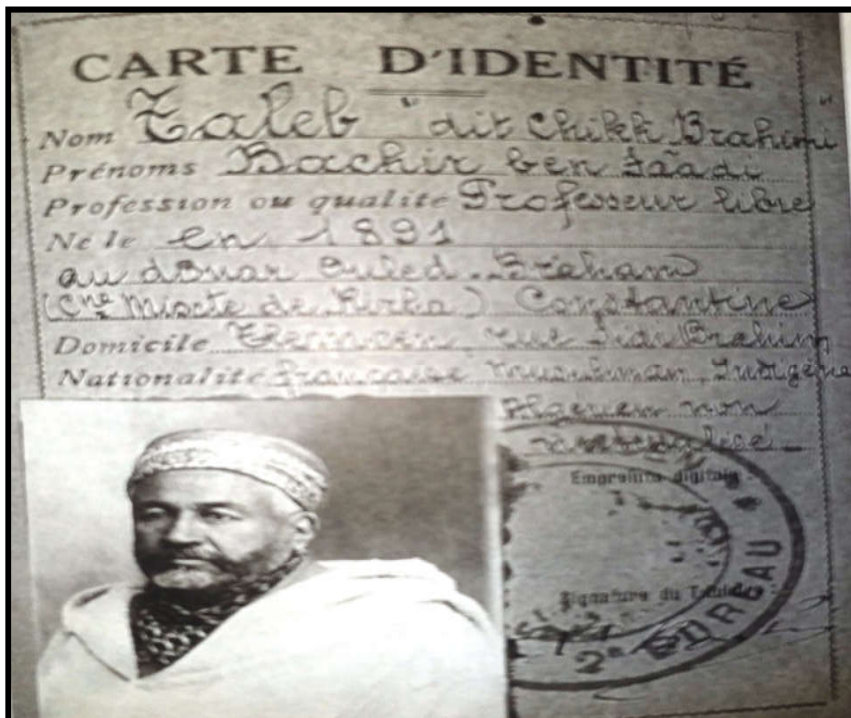 CARTE D'IDENTITÉ
Nom Taleb "dit Chikh Brahimi"
Prénoms Bachir ben Saâdi
Profession ou qualité Professeur libre
Né le en 1891
au douar Ouled-Braham
(Cne Mixte de Rirha) Constantine
Domicile Tlemcen rue Sidi Brahim
Nationalité française musulman Indigène
Algérien non
naturalisé
Empreinte digitale
Signature du Titulaire
2e BUREAU *